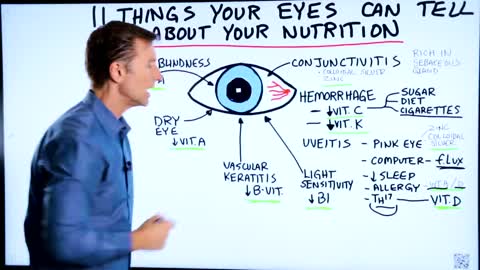 11 THINGS YOUR EYES CAN TELL
ABOUT YOUR NUTRITION
BLINDNESS
B1
CONJUNCTIVITIS
- COLLOIDAL SILVER
ZINC
RICH IN
SEBACEOUS
GLAND
HEMORRHAGE
- ↓ VIT. C
- ↓ VIT. K
SUGAR
DIET
CIGARETTES
DRY
EYE
↓ VIT. A
VASCULAR
KERATITIS
↓ B-VIT.
LIGHT
SENSITIVITY
↓ B1
UVEITIS
- PINK EYE
ZINC
COLLOIDAL
SILVER
- COMPUTER - f.lux
- ↓ SLEEP
- ALLERGY - VIT A/D
- TH17 VIT. D